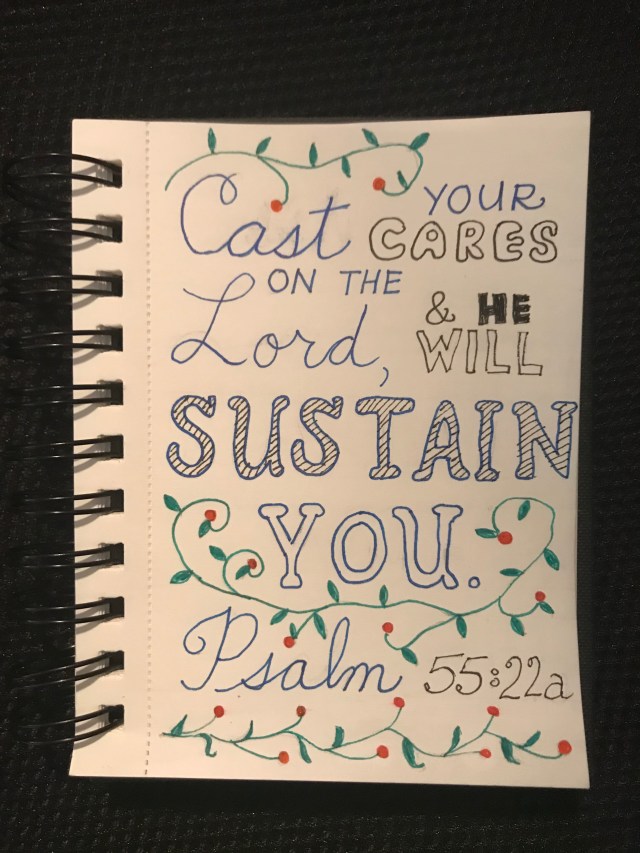 Cast YOUR CARES
ON THE
Lord, & HE WILL
SUSTAIN
YOU.
Psalm 55:22a